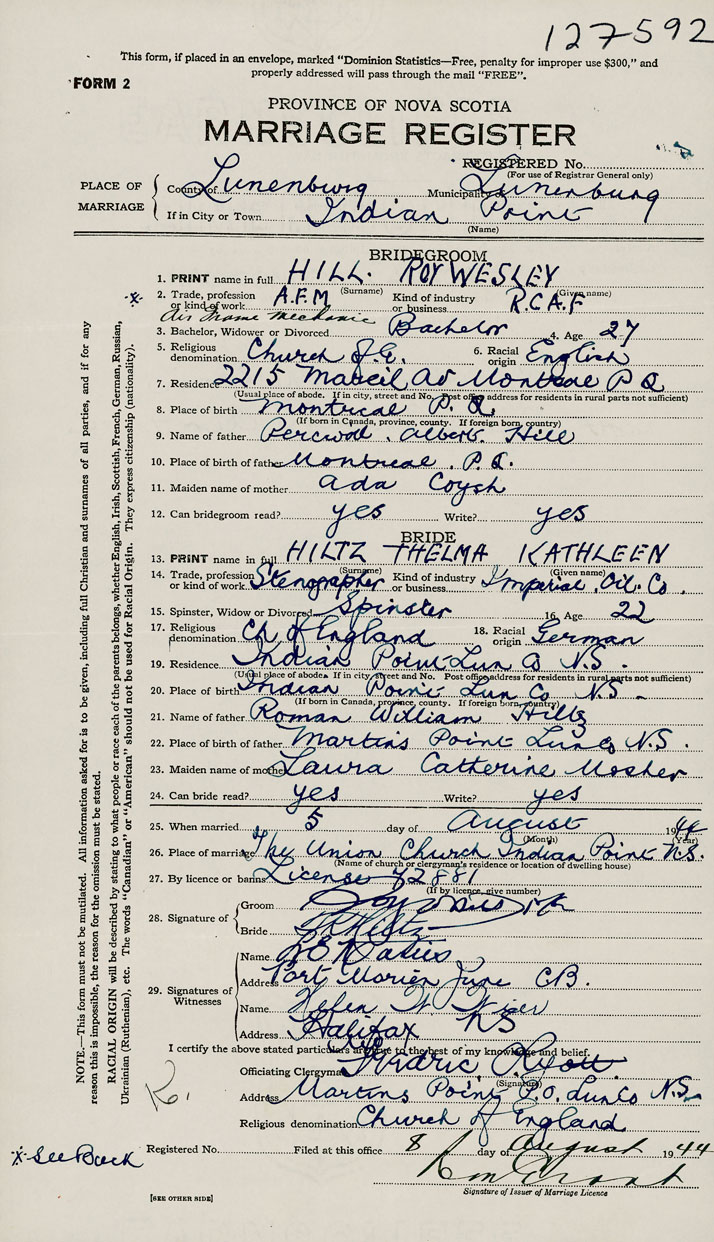 127592
This form, if placed in an envelope, marked "Dominion Statistics—Free, penalty for improper use $300," and
properly addressed will pass through the mail "FREE".
FORM 2
PROVINCE OF NOVA SCOTIA
MARRIAGE REGISTER
REGISTERED No.
(For use of Registrar General only)
PLACE OF MARRIAGE
County of Lunenburg Municipality Lunenburg
If in City or Town Indian Point
(Name)
BRIDEGROOM
1. PRINT name in full HILL. ROY WESLEY
(Surname) (Given name)
2. Trade, profession or kind of work A.F.M Kind of industry or business R.C.A.F
Air frame mechanic
3. Bachelor, Widower or Divorced Bachelor 4. Age 27
5. Religious denomination Church of E. 6. Racial origin English
7. Residence 2215 Marcil Av Montreal P Q
(Usual place of abode. If in city, street and No. Post office address for residents in rural parts not sufficient)
8. Place of birth Montreal P. Q.
(If born in Canada, province, county. If foreign born, country)
9. Name of father Percival Albert Hill
10. Place of birth of father Montreal P.Q.
11. Maiden name of mother Ada Coysh
12. Can bridegroom read? yes Write? yes
BRIDE
13. PRINT name in full HILTZ THELMA KATHLEEN
(Surname) (Given name)
14. Trade, profession or kind of work Stenographer Kind of industry or business Imperial Oil Co.
15. Spinster, Widow or Divorced Spinster 16. Age 22
17. Religious denomination Ch of England 18. Racial origin German
19. Residence Indian Point Lun Co N.S.
(Usual place of abode. If in city, street and No. Post office address for residents in rural parts not sufficient)
20. Place of birth Indian Point Lun Co N.S.
(If born in Canada, province, county. If foreign born, country)
21. Name of father Roman William Hiltz
22. Place of birth of father Martins Point Lun Co N.S.
23. Maiden name of mother Laura Catherine Mosher
24. Can bride read? yes Write? yes
25. When married 5 day of August 1944
(Month) (Year)
26. Place of marriage The Union Church Indian Point N.S.
(Name of church or clergyman's residence or location of dwelling house)
27. By licence or banns License 42881
(If by licence, give number)
28. Signature of
Groom
Bride Hiltz
29. Signatures of Witnesses
Name
Address Port Morien C.B.
Name Helen
Address Halifax NS
I certify the above stated particulars are true to the best of my knowledge and belief.
Officiating Clergyman
(Signature)
Address Martins Point P.O. Lun Co N.S.
Religious denomination Church of England
Registered No. Filed at this office 8 day of August 1944
Signature of Issuer of Marriage Licence
[SEE OTHER SIDE]
*-See Back
NOTE.—This form must not be mutilated. All information asked for is to be given, including full Christian and surnames of all parties, and if for any
reason this is impossible, the reason for the omission must be stated.
RACIAL ORIGIN will be described by stating to what people or race each of the parents belongs, whether English, Irish, Scottish, French, German, Russian,
Ukrainian (Ruthenian), etc. The words "Canadian" or "American" should not be used for Racial Origin. They express citizenship (nationality).